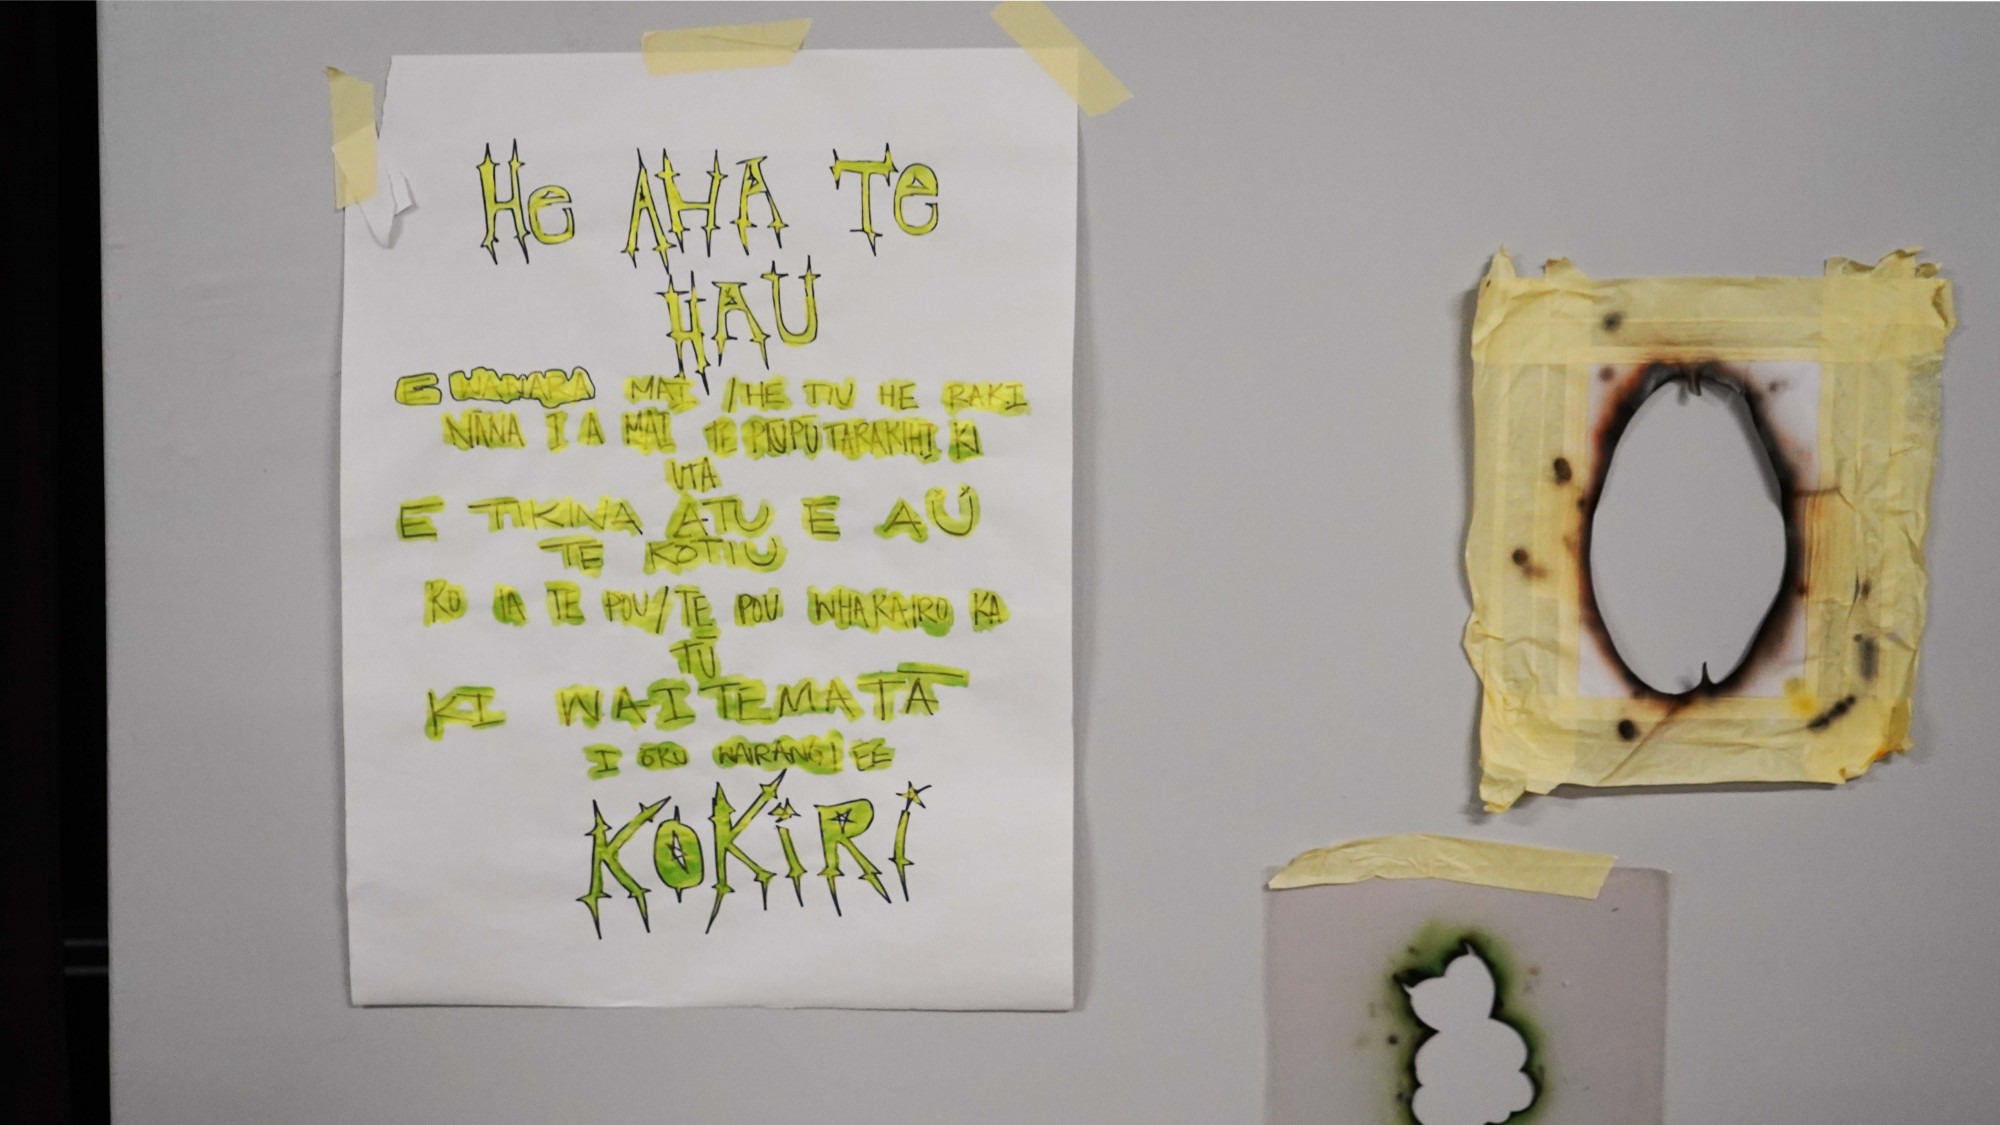 He AHA Te
HAU
E WAWARA MAI / HE TIU HE RAKI
NĀNA I A MAI TE PŪPŪTARAKIHI KI
UTA
E TIKINA ATU E AU
TE KOTIU
KO IA TE POU / TE POU WHAKAIRO KA
TŪ
KI WAITEMATĀ
I ŌKU WAIRANGI EE
KOKiRi